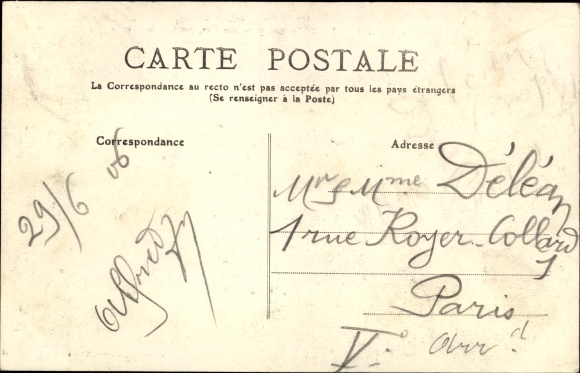 CARTE POSTALE
La Correspondance au recto n'est pas acceptée par tous les pays étrangers
(Se renseigner à la Poste)
Correspondance
29/6 06
Alfred
Adresse
Mr & Mme Déléan
1 rue Royer-Collard
1
Paris
V.º Arr.d